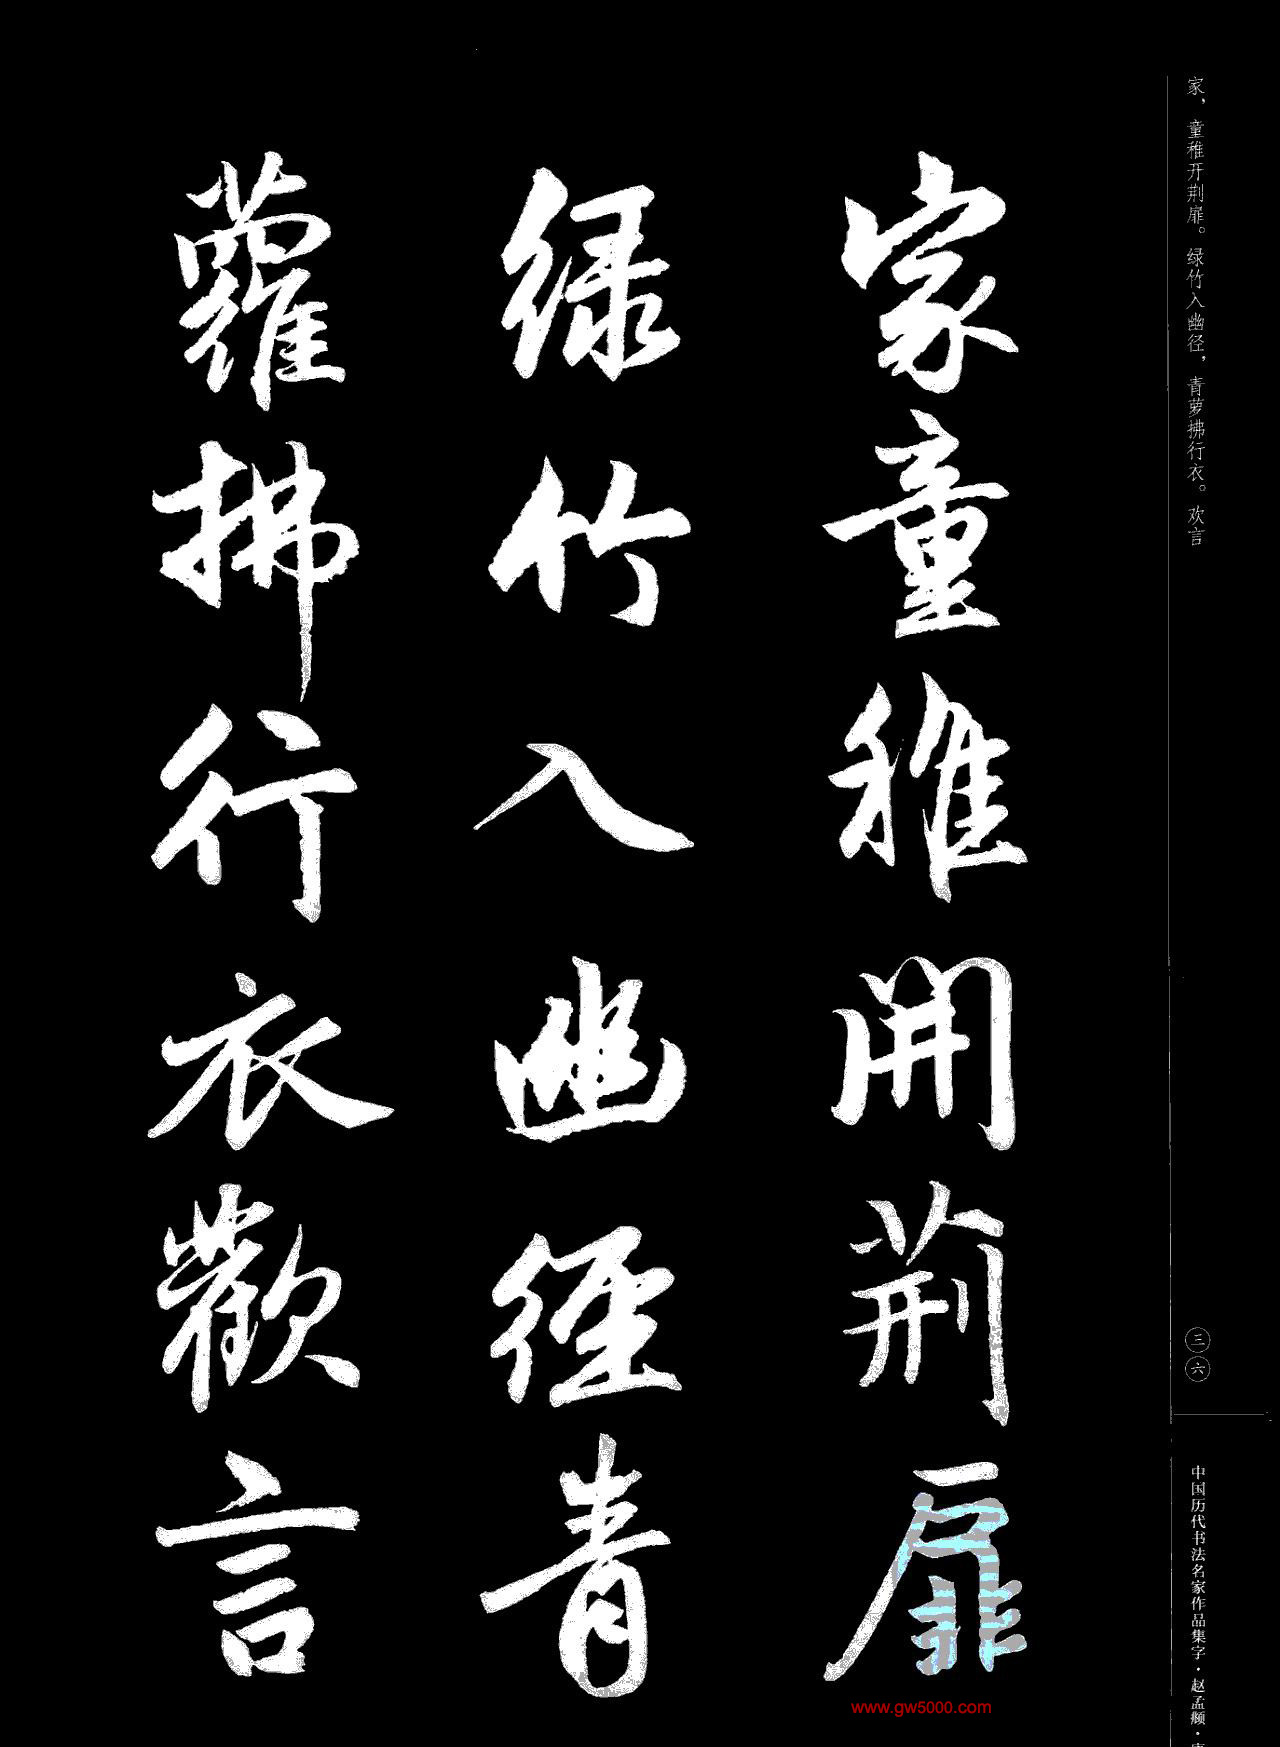 家，童稚开荆扉。绿竹入幽径，青萝拂行衣。欢言
三六
中国历代书法名家作品集字·赵孟頫·
家童稚開荆扉
绿竹入幽徑青
蘿拂行衣歡言
www.gw5000.com